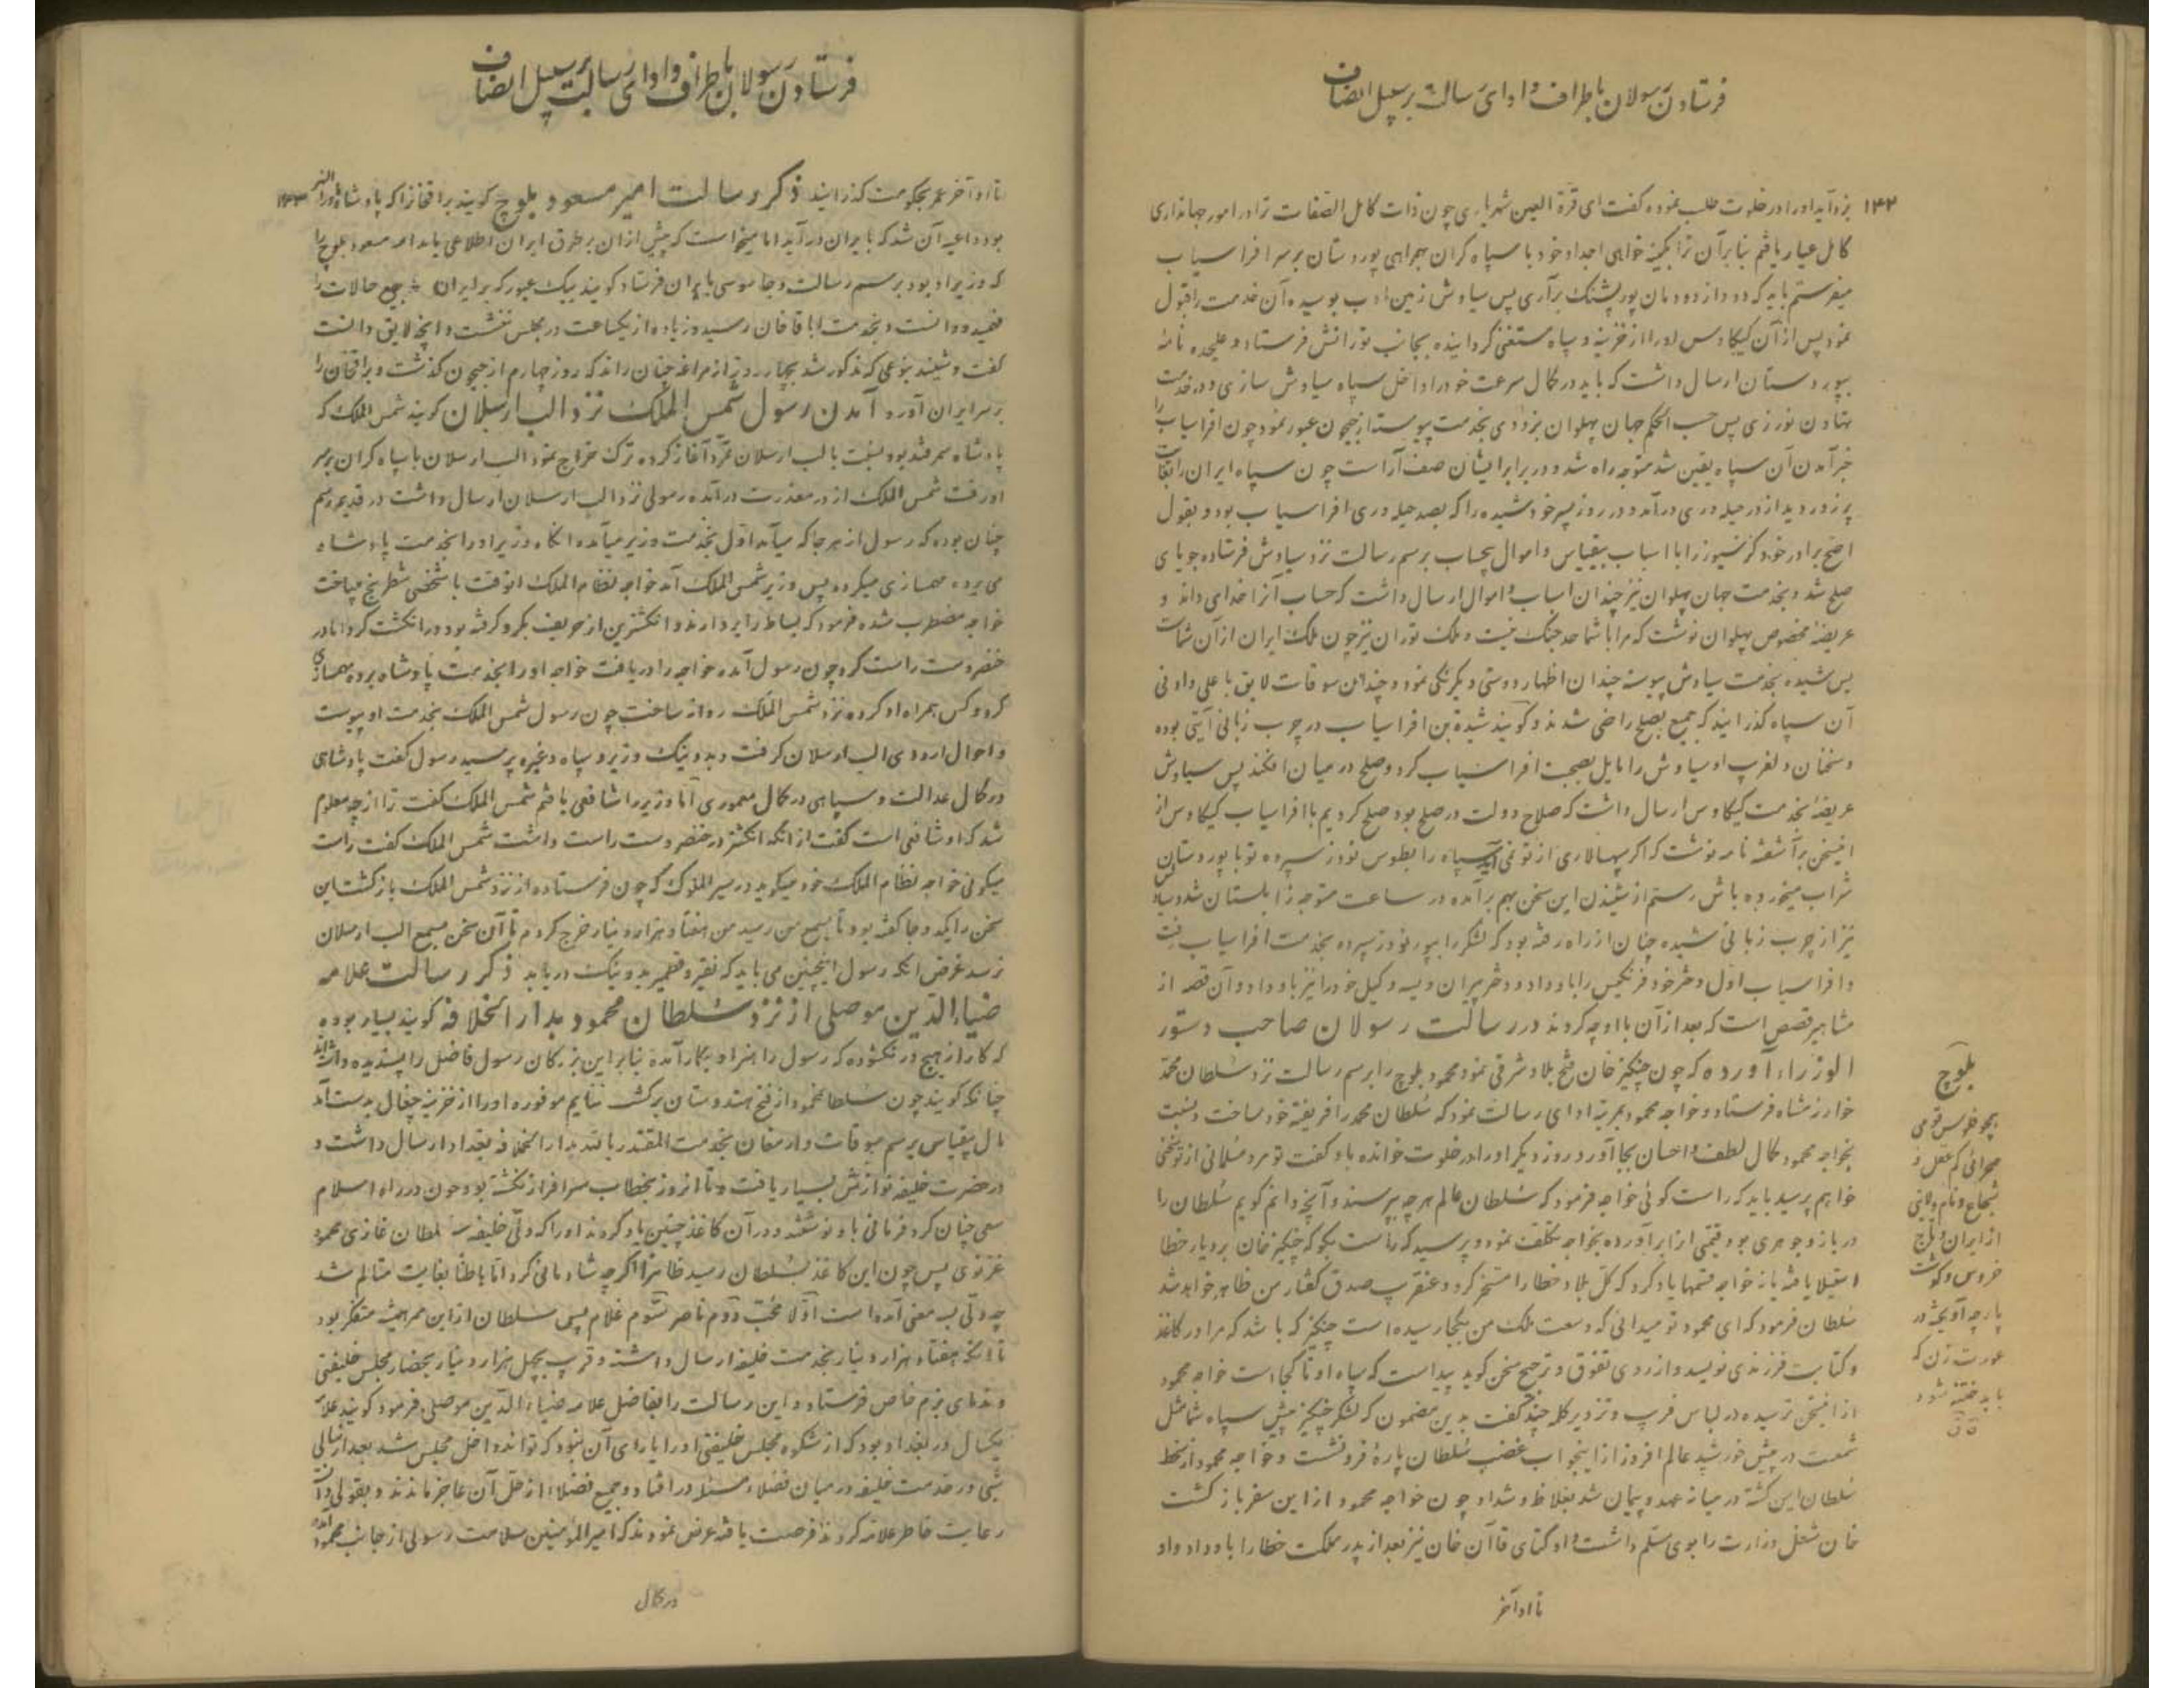 فرستادن رسولان باطراف و ادای رسالت بر سبیل انصاف
۱۴۲
نزد آید او را در خلوت طلب نموده گفت ای قرة العین شهریاری چون ذات کامل الصفات ترا در امور جهانداری
کامل عیار یافتم بنابر آن ترا بکینه خواهی اجداد خود با سپاه کران بهمراهی پور دستان بر سر افراسیاب
میفرستم باید که دود از دودمان پور پشنک برآری پس سیاوش زمین ادب بوسیده آن خدمت را قبول
نمود پس از آن کیکاوس او را از خزینه و سپاه مستغنی گردانیده بجانب تورانش فرستاد و علیحده نامهٔ
بپور دستان ارسال داشت که باید در کمال سرعت خود را داخل سپاه سیاوش سازی و در خدمت
تهاون نورزی پس حسب الحکم جهان پهلوان بزودی بخدمت پیوسته از جیحون عبور نمود چون افراسیاب را
خبر آمدن آن سپاه یقین شد متوجه راه شد و در برابر ایشان صف آراست چون سپاه ایران را بغایت
پر زور دید از در حیله وری درآمد و در روز پسر خود شیده را که بصد حیله وری افراسیاب بود و بقول
اصح برادر خود کرسیوز را با اسباب بیقیاس و اموال بیحساب برسم رسالت نزد سیاوش فرستاده جویای
صلح شد و بخدمت جهان پهلوان نیز چندان اسباب و اموال ارسال داشت که حساب آنرا خدای داند و
عریضهٔ مخصوص پهلوان نوشت که مرا با شما حد جنک نیست و ملک توران نیز چون ملک ایران از آن شماست
پس شیده بخدمت سیاوش پیوسته چندان اظهار دوستی و یکرنکی نمود و چندان سوقات لایق باعلی و ادنی
آن سپاه گذرانید که جمیع بصلح راضی شدند و کویند شیدة بن افراسیاب در چرب زبانی آیتی بوده
و سخنان دلفریب او سیاوش را مایل بصحبت افراسیاب کرد و صلح در میان افکند پس سیاوش
عریضهٔ بخدمت کیکاوس ارسال داشت که صلاح دولت در صلح بود صلح کردیم با افراسیاب کیکاوس از
اینسخن برآشفته نامه نوشت که اکر سپهسالاری از تو نمی‌آید سپاه را بطوس نوذر سپرده تو با پور دستان
شراب میخورده باش رستم از شنیدن این سخن بهم برآمده در ساعت متوجه زابلستان شد و سیاوش
نیز از چرب زبانی شیده چنان از راه رفته بود که لشکر را بپور نوذر سپرده بخدمت افراسیاب رفت
و افراسیاب اول دختر خود فرنکیس را باو داد و دختر پیران ویسه وکیل خود را نیز باو داد و آن قصه از
مشاهیر قصص است که بعد از آن با او چه کردند در رسالت رسولان صاحب دستور
الوزراء آورده که چون چنکیز خان فتح بلاد شرقی نمود محمود بلوج را برسم رسالت نزد سلطان محمد
خوارزمشاه فرستاد و خواجه محمود بمرتبهٔ ادای رسالت نمود که سلطان محمد را فریفتهٔ خود ساخت و نسبت
بخواجه محمود کمال لطف و احسان بجا آورد روز دیکر او را در خلوت خوانده باو گفت تو مرد مسلمانی از تو سخنی
خواهم پرسید باید که راست کوئی خواجه فرمود که سلطان عالم هر چه بپرسند و آنچه دانم کویم سلطان را
در بازو جوهری بود قیمتی از آن برآورده بخواجه تکلف نمود و پرسید که راست بکو که چنکیز خان بر دیار خطا
استیلا یافته یا نه خواجه قسمها یاد کرد که کل بلاد خطا را مسخر کرد و عنقریب صدق گفتار من ظاهر خواهد شد
سلطان فرمود که ای محمود تو میدانی که وسعت ملک من بکجا رسیده است چنکیز که باشد که مرا در کاغذ
و کتابت فرزندی نویسد و از روی تفوق و ترجیح سخن کوید پیداست که سپاه او تا کجاست خواجه محمود
از اینسخن ترسیده در لباس فریب و تزویر کلمهٔ چند گفت بدین مضمون که لشکر چنکیز پیش سپاه شما مثل
شمعست در پیش خورشید عالم افروز از اینجواب غضب سلطان پارهٔ فرو نشست و خواجه محمود از سخط
سلطان ایمن کشته در میانه عهد و پیمان شد بغلاظ و شداد چون خواجه محمود از این سفر باز کشت
خان شغل وزارت را بوی مسلم داشت و اوکتای قاآن خان نیز بعد از پدر مملکت خطا را باو داد و او
تا او آخر
بلوج
بچو خلوس قومی
صحرائی کم عقل و
شجاع و نام ولایتی
از ایران و تاج
خروس و کوشت
پارچه آویخته در
عورت زن که
باید ختنه شود
فرستادن رسولان باطراف و ادای رسالت بر سبیل انصاف
۱۴۳
تا او آخر عمر بحکومت گذرانید ذکر رسالت امیر مسعود بلوج کویند براقخان را که پادشاه ماوراء النهر
بود داعیهٔ آن شد که بایران درآید اما میخواست که پیش از آن بر طرق ایران اطلاعی یابد امیر مسعود بلوج را
که وزیر او بود برسم رسالت و جاسوسی بایران فرستاد کویند بیک عبور که بر ایران جمیع حالات را
فهمید و دانست و بخدمت اباقاخان رسید و زیاده از یکساعت در مجلس ننشست و آنچه لایق دانست
گفت و شنید بنوعی که مذکور شد بچهار روز از مراغه چنان راند که روز چهارم از جیحون گذشت و براقخان را
بر سر ایران آورد آمدن رسول شمس الملک نزد الب ارسلان کویند شمس الملک که
پادشاه سمرقند بود نسبت بالب ارسلان تمرد آغاز کرده ترک خراج نمود الب ارسلان با سپاه کران بر سر
او رفت شمس الملک از در معذرت درآمده رسولی نزد الب ارسلان ارسال داشت در قدیم رسم
چنان بوده که رسول از هر جا که میآمد اول بخدمت وزیر میآمد و انکاه وزیر او را بخدمت پادشاه
می برد و مهمسازی میکرده پس وزیر شمس الملک آمد خواجه نظام الملک انوقت با شخصی شطرنج میباخت
خواجه مضطرب شده فرمود که بساط را بردارند و انکشترین از حریف بکرو کرفته بود و در انکشت کرد اما در
خنصر دست راست کرد چون رسول آمده خواجه را دریافت خواجه او را بخدمت پادشاه برده مهمسازی
کرد و کس همراه او کرده نزد شمس الملک روانه ساخت چون رسول شمس الملک بخدمت او پیوست
و احوال اردوی الب ارسلان کرفت و بد و نیک وزیر و سپاه و غیره پرسید رسول گفت پادشاهی
در کمال عدالت و سپاهی در کمال معموری اما وزیر را شافعی یافتم شمس الملک گفت ترا از چه معلوم
شد که او شافعی است گفت از انکه انکشتر در خنصر دست راست داشت شمس الملک گفت راست
میکوئی خواجه نظام الملک خود میکوید در سیر الملوک که چون فرستاده از نزد شمس الملک باز کشت این
سخن را یکدو جا گفته بود تا بسمع من رسید من هفتاد هزار دینار خرج کردم تا آن سخن بسمع الب ارسلان
نرسد غرض انکه رسول اینچنین می باید که نقیر و قطمیر بد و نیک دریابد ذکر رسالت علامه
ضیاء الدین موصلی از نزد سلطان محمود بدار الخلافه کویند بسیار بوده
که کار از هیچ در نکشوده که رسول را هنر او بکار آمده بنابر این بزرکان رسول فاضل را پسندیده داشته‌اند
چنانکه کویند چون سلطانمحمود از فتح هندوستان برکشت غنایم موفوره او را از خزینهٔ چغال بدست آمد
مال بیقیاس برسم سوقات و ارمغان بخدمت المقتدر بالله بدار الخلافهٔ بغداد ارسال داشت و
در حضرت خلیفه نوازش بسیار یافت و تا انروز بخطاب سرافراز نکشته بود چون در راه اسلام
سعی چنان کرد فرمانی باو نوشتند و در آن کاغذ چنین یاد کردند او را که ولی خلیفه سلطان غازی محمود
غزنوی پس چون این کاغذ بسلطان رسید ظاهرا اکرچه شادمانی کرد اما باطنا بغایت متالم شد
چه ولی بسه معنی آمده است اولا محب دوم ناصر سوم غلام پس سلطان از این ممر همیشه متفکر بود
تا انکه هفتاد هزار دینار بخدمت خلیفه ارسال داشته و قریب بچهل هزار دینار بحضار مجلس خلیفتی
و ندمای بزم خاص فرستاد و این رسالت را بفاضل علامه ضیاء الدین موصلی فرمود کویند علامه
یکسال در بغداد بود که از شکوه مجلس خلیفتی او را یارای آن نبود که تواند داخل مجلس شد بعد از سالی
شبی در خدمت خلیفه در میان فضلا مسئله در افتاد و جمیع فضلا از حل آن عاجز ماندند و بقولی
رعایت خاطر علامه کردند فرصت یافته عرض نمودند که امیر المؤمنین سلامت رسولی از جانب محمود آمده
در کمال